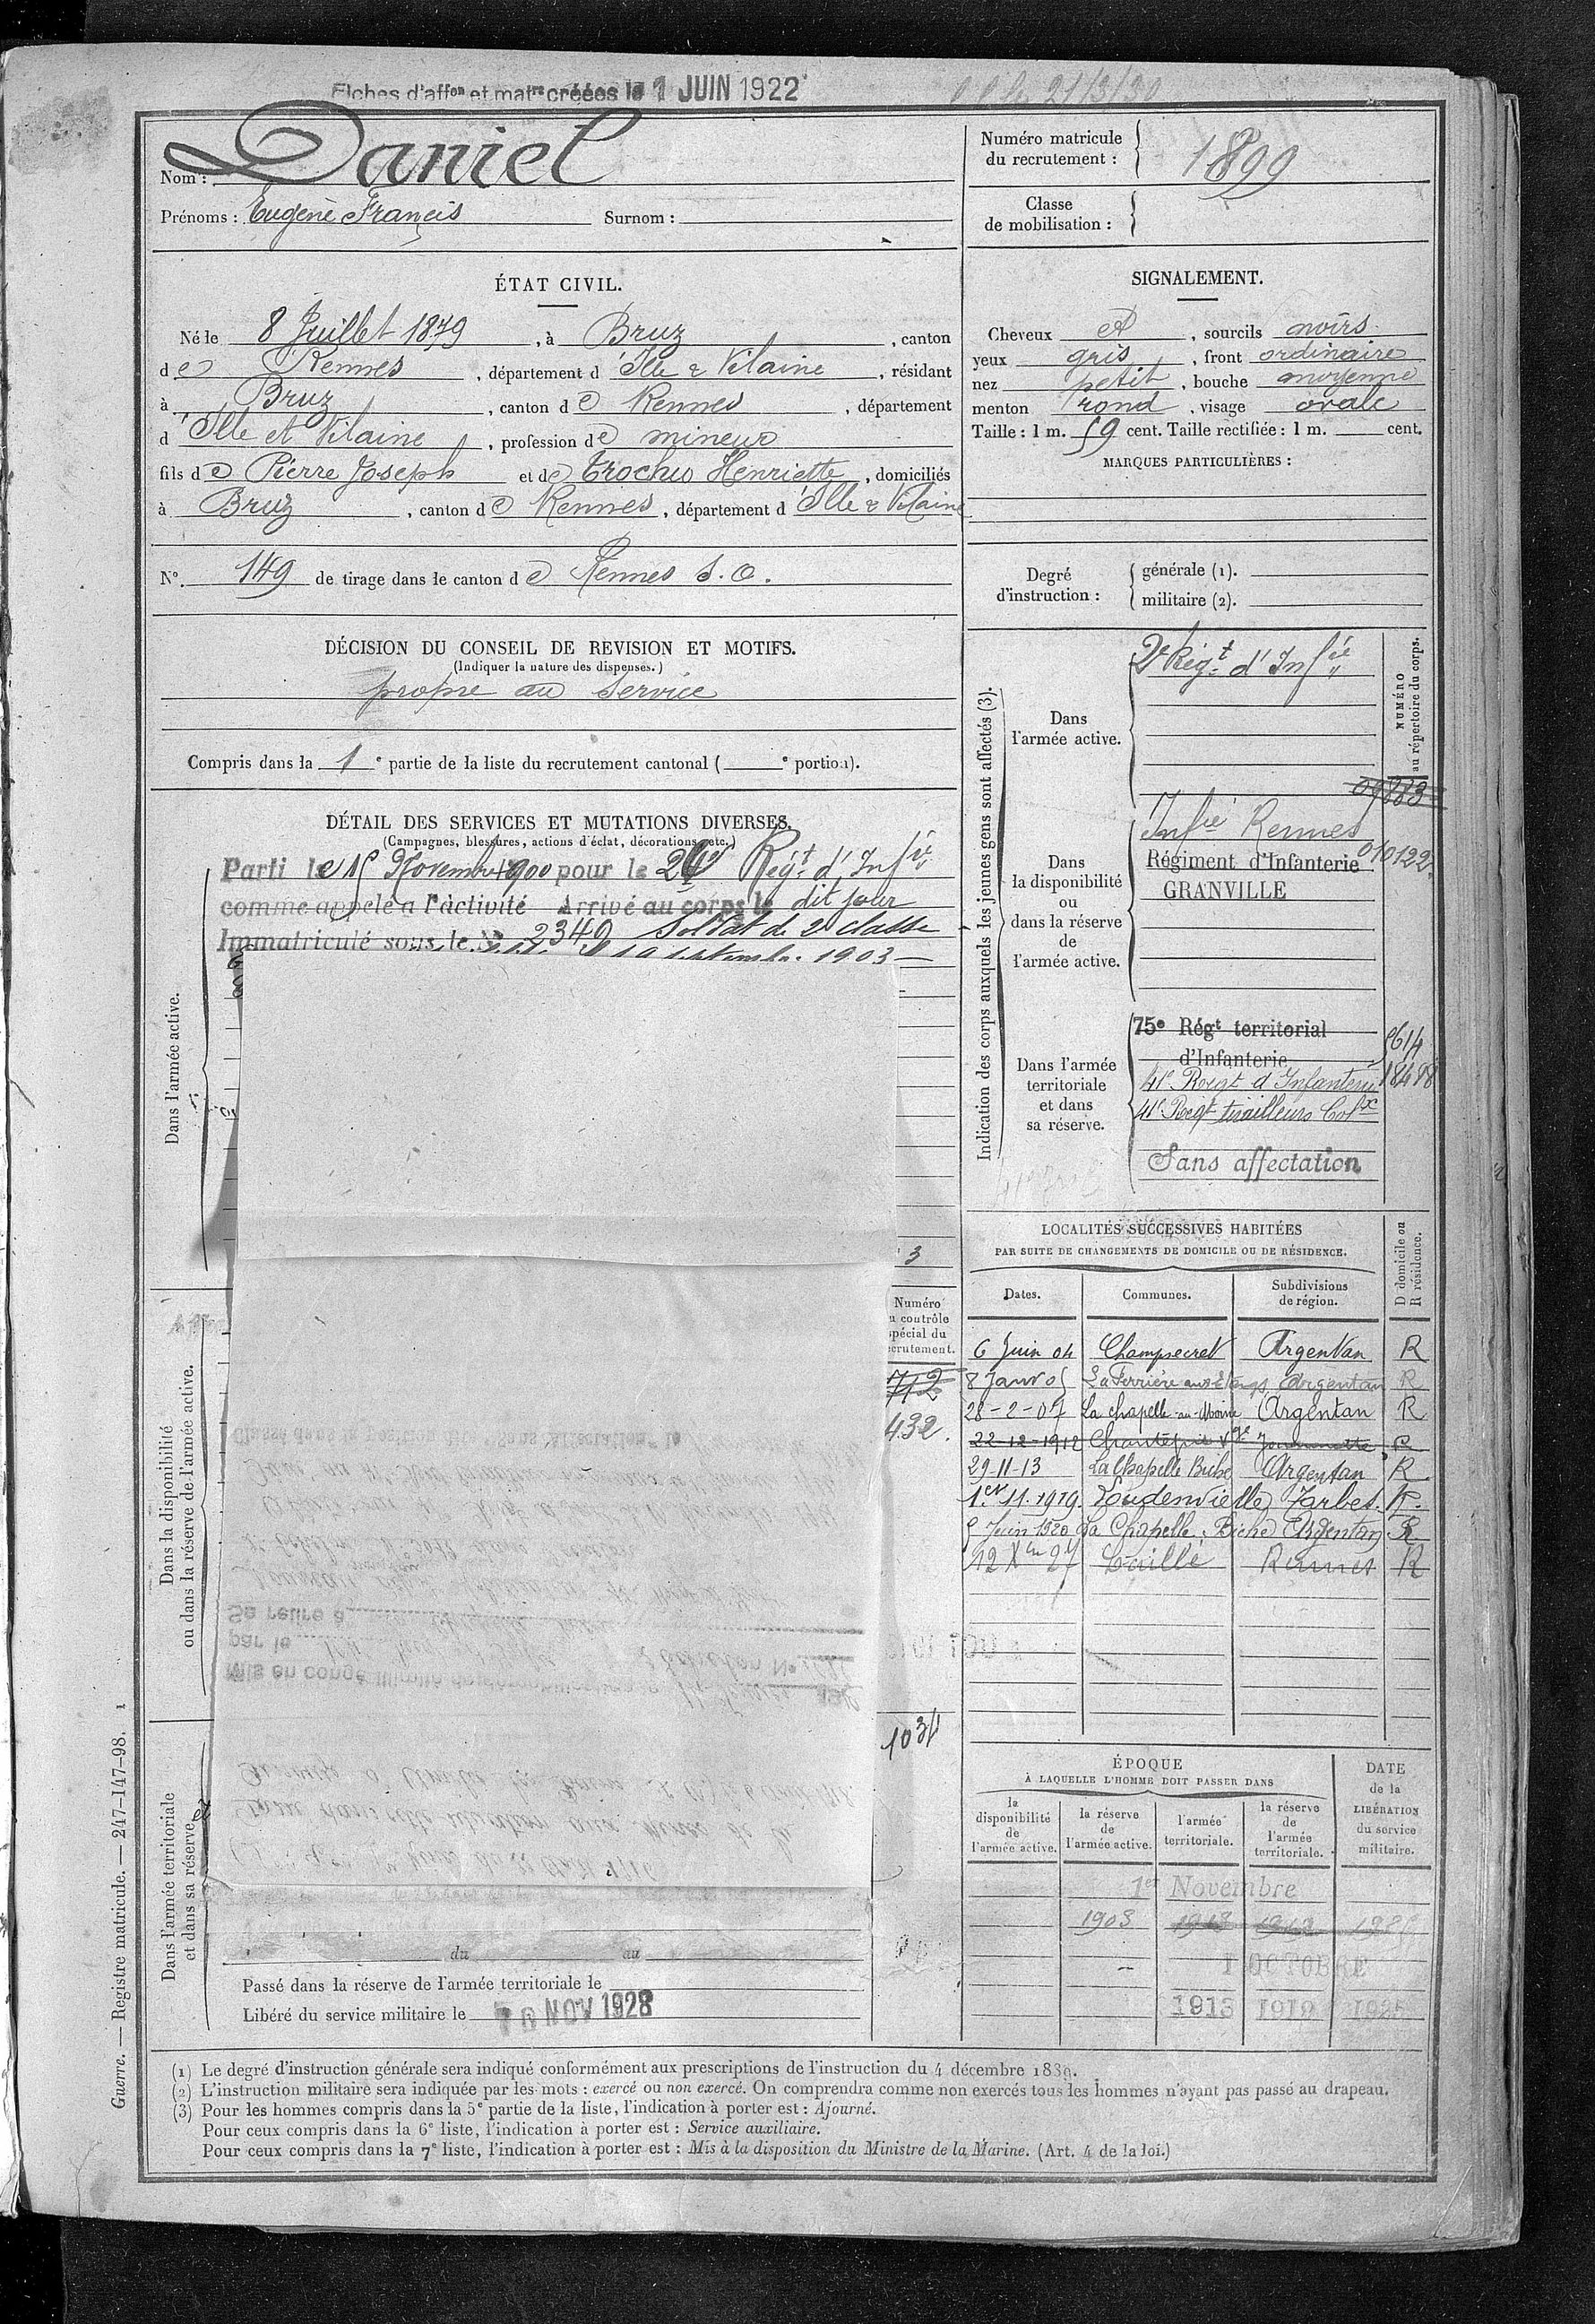 Fiches d'affon et matre créées le 1 JUIN 1922
21/3/30
Nom : Daniel
Prénoms : Eugène Francis Surnom :
ÉTAT CIVIL.
Né le 8 Juillet 1879, à Bruz, canton
de Rennes, département d'Ille & Vilaine, résidant
à Bruz, canton de Rennes, département
d'Ille et Vilaine, profession de mineur
fils de Pierre Joseph et de Trochu Henriette, domiciliés
à Bruz, canton de Rennes, département d'Ille & Vilaine
N°. 149 de tirage dans le canton de Rennes S. O.
DÉCISION DU CONSEIL DE REVISION ET MOTIFS.
(Indiquer la nature des dispenses.)
propre au service
Compris dans la 1e partie de la liste du recrutement cantonal ( e portion).
DÉTAIL DES SERVICES ET MUTATIONS DIVERSES.
(Campagnes, blessures, actions d'éclat, décorations, etc.)
Parti le 15 Novembre 1900 pour le 2e Régt d'Infie
comme appelé à l'activité Arrivé au corps le dit jour
Immatriculé sous le N° 2349 Soldat de 2e classe
septembre 1903
Dans l'armée active.
3
Numéro
u contrôle
spécial du
ecrutement.
712
432.
Dans la disponibilité
ou dans la réserve de l'armée active.
Se retire à
par le
Mis en congé illimité
1034
Dans l'armée territoriale
et dans sa réserve.
du au
Passé dans la réserve de l'armée territoriale le
Libéré du service militaire le NOV 1928
Numéro matricule
du recrutement : 1899
Classe
de mobilisation :
SIGNALEMENT.
Cheveux et, sourcils noirs
yeux gris, front ordinaire
nez petit, bouche moyenne
menton rond, visage ovale
Taille : 1 m. 59 cent. Taille rectifiée : 1 m. cent.
MARQUES PARTICULIÈRES :
Degré
d'instruction :
générale (1).
militaire (2).
Indication des corps auxquels les jeunes gens sont affectés (3).
NUMÉRO
au répertoire du corps.
Dans
l'armée active.
2e Régt d'Infie
09883
Dans
la disponibilité
ou
dans la réserve
de
l'armée active.
Infie Rennes
Régiment d'Infanterie 010122
GRANVILLE
Dans l'armée
territoriale
et dans
sa réserve.
75e Régt territorial
d'Infanterie 5614
41e Regt d'Infanterie 18488
41e Regt tirailleurs Colx
Sans affectation
LOCALITÉS SUCCESSIVES HABITÉES
PAR SUITE DE CHANGEMENTS DE DOMICILE OU DE RÉSIDENCE.
Dates. Communes. Subdivisions de région. D domicile ou R résidence.
6 Juin 04 Champsecret Argentan R
8 Janv 05 La Ferrière aux Etangs Argentan R
28-2-07 La chapelle au Moine Argentan R
22-12-1912 R
29-11-13 La Chapelle Biche Argentan R
1er 11.1919. Loudenvielle Tarbes. R.
5 Juin 1920 La Chapelle Biche Argentan R
12 Xbre 27 Baillé Rennes R
ÉPOQUE
À LAQUELLE L'HOMME DOIT PASSER DANS
la disponibilité de l'armée active.
la réserve de l'armée active.
l'armée territoriale.
la réserve de l'armée territoriale.
DATE de la LIBÉRATION du service militaire.
1er Novembre
1903 1913 1919
1 OCTOBRE
1913 1919 1925
(1) Le degré d'instruction générale sera indiqué conformément aux prescriptions de l'instruction du 4 décembre 1889.
(2) L'instruction militaire sera indiquée par les mots : exercé ou non exercé. On comprendra comme non exercés tous les hommes n'ayant pas passé au drapeau.
(3) Pour les hommes compris dans la 5e partie de la liste, l'indication à porter est : Ajourné.
Pour ceux compris dans la 6e liste, l'indication à porter est : Service auxiliaire.
Pour ceux compris dans la 7e liste, l'indication à porter est : Mis à la disposition du Ministre de la Marine. (Art. 4 de la loi.)
Guerre. — Registre matricule. — 247-147-98. 1